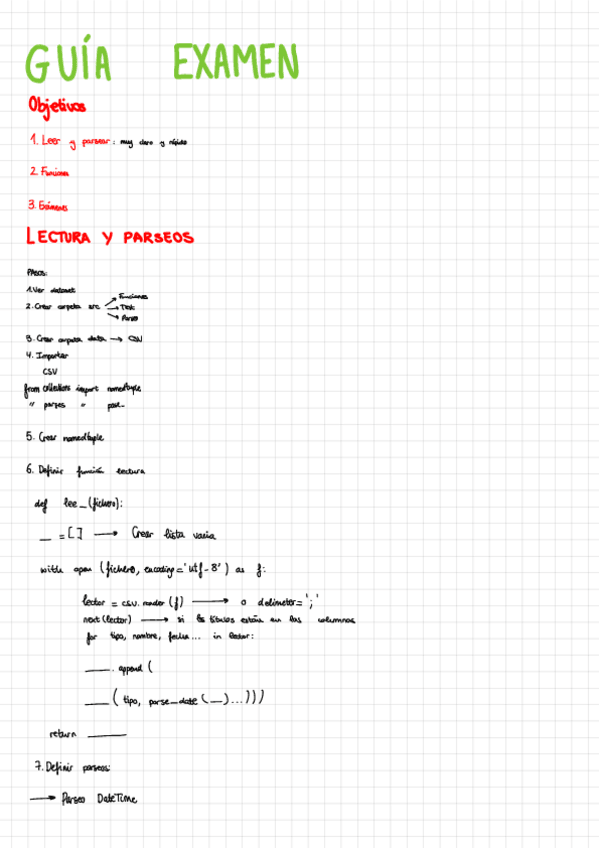 GUÍA EXAMEN
Objetivos
1. Leer y parsear: muy claro y rápido
2. Funciones
3. Exámenes
LECTURA Y PARSEOS
PASOS:
1. Ver dataset
2. Crear carpeta src → Funciones
→ Test
→ Parseo
3. Crear carpeta data → CSV
4. Importar
CSV
from collections import namedtuple
" parseos "
5. Crear namedtuple
6. Definir función lectura
def lee_(fichero):
__ = [] → Crear lista vacia
with open (fichero, encoding='utf-8') as f:
lector = csv.reader (f) → o delimeter=';'
next (lector) → si los títulos están en las columnas
for tipo, nombre, fecha... in lector:
____. append (
____ ( tipo, parse_date (__)...)))
return ____
7. Definir parseos:
→ Parseo DateTime